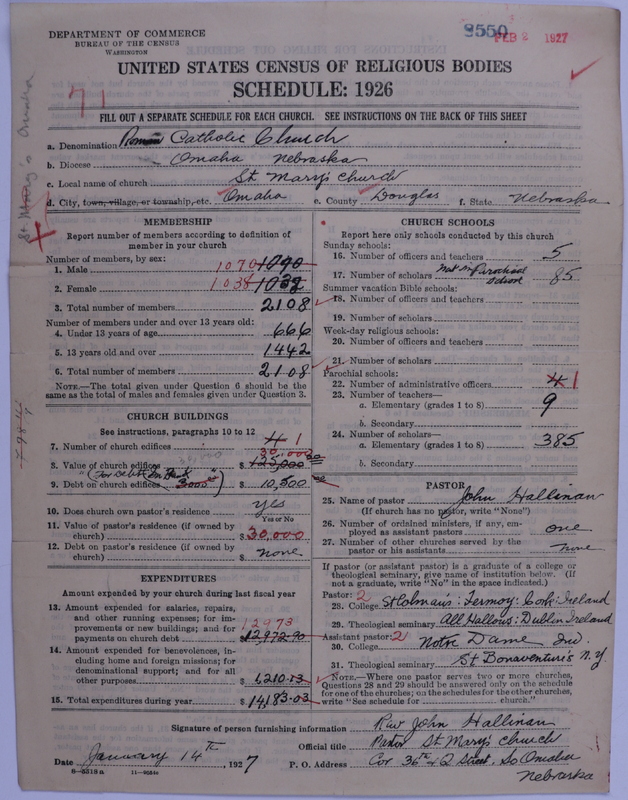 DEPARTMENT OF COMMERCE
BUREAU OF THE CENSUS
WASHINGTON
8550 FEB 2 1927
UNITED STATES CENSUS OF RELIGIOUS BODIES
SCHEDULE: 1926
71
FILL OUT A SEPARATE SCHEDULE FOR EACH CHURCH. SEE INSTRUCTIONS ON THE BACK OF THIS SHEET
St Mary's Omaha
a. Denomination Roman Catholic Church
b. Diocese Omaha Nebraska
c. Local name of church St. Mary's Church
d. City, town, village, or township, etc. Omaha e. County Douglas f. State Nebraska
MEMBERSHIP
Report number of members according to definition of
member in your church
Number of members, by sex:
1. Male 1070 1040
2. Female 1038 1038
3. Total number of members 2108
Number of members under and over 13 years old:
4. Under 13 years of age 666
5. 13 years old and over 1442
6. Total number of members 2108
NOTE.—The total given under Question 6 should be the
same as the total of males and females given under Question 3.
CHURCH BUILDINGS
See instructions, paragraphs 10 to 12
7. Number of church edifices 4 1
8. Value of church edifices $ 125,000 30,000
9. Debt on church edifices $ 10,500
10. Does church own pastor's residence yes
Yes or No
11. Value of pastor's residence (if owned by
church) $ 30,000
12. Debt on pastor's residence (if owned by
church) $ none
EXPENDITURES
Amount expended by your church during last fiscal year
13. Amount expended for salaries, repairs,
and other running expenses; for im-
provements or new buildings; and for
payments on church debt 12973 $ 12,972.90
14. Amount expended for benevolences, in-
cluding home and foreign missions; for
denominational support; and for all
other purposes $ 1,210.13
15. Total expenditures during year $ 14,183.03
CHURCH SCHOOLS
Report here only schools conducted by this church
Sunday schools:
16. Number of officers and teachers 5
17. Number of scholars Not in Parochial School 85
Summer vacation Bible schools:
18. Number of officers and teachers
19. Number of scholars
Week-day religious schools:
20. Number of officers and teachers
21. Number of scholars
Parochial schools:
22. Number of administrative officers 4 1
23. Number of teachers—
a. Elementary (grades 1 to 8) 9
b. Secondary
24. Number of scholars—
a. Elementary (grades 1 to 8) 385
b. Secondary
PASTOR
25. Name of pastor John Hallinan
(If church has no pastor, write "None")
26. Number of ordained ministers, if any, em-
ployed as assistant pastors one
27. Number of other churches served by the
pastor or his assistants none
If pastor (or assistant pastor) is a graduate of a college or
theological seminary, give name of institution below. (If
not a graduate, write "No" in the space indicated.)
Pastor: 2
28. College St Colman's: Fermoy: Cork: Ireland
29. Theological seminary All Hallows: Dublin Ireland
Assistant pastor: 2
30. College Notre Dame Ind.
31. Theological seminary St Bonaventure's N.Y.
NOTE.—Where one pastor serves two or more churches,
Questions 28 and 29 should be answered only on the schedule
for one of the churches; on the schedules for the other churches,
write "See schedule for church."
Signature of person furnishing information Rev John Hallinan
Official title Pastor St Mary's Church
Date January 14th, 1927 P. O. Address Cor 36th & Q Street, So Omaha
Nebraska
8—5319a